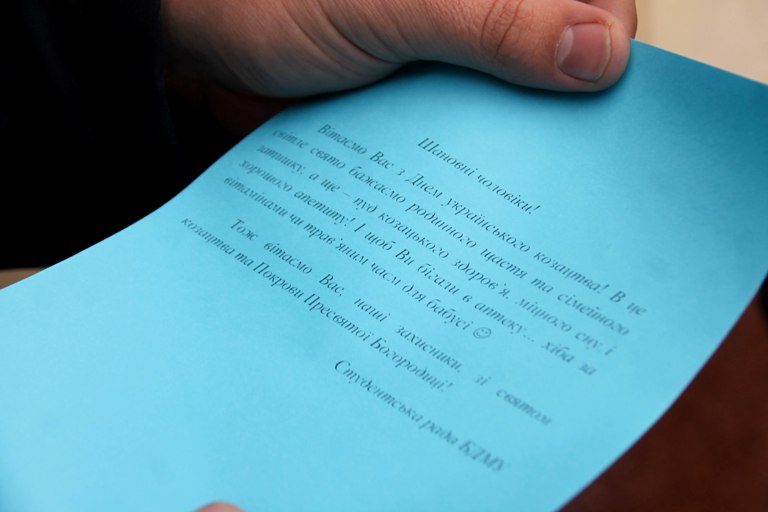 Шановні чоловіки!
Вітаємо Вас з Днем українського козацтва! В це
світле свято бажаємо родинного щастя та сімейного
затишку, а ще – пуд козацького здоров'я, міцного сну і
хорошого апетиту! І щоб Ви бігали в аптеку... хіба за
вітамінами чи трав'яним чаєм для бабусі ☺
Тож вітаємо Вас, наші захисники, зі святом
козацтва та Покрови Пресвятої Богородиці!
Студентська рада БДМУ